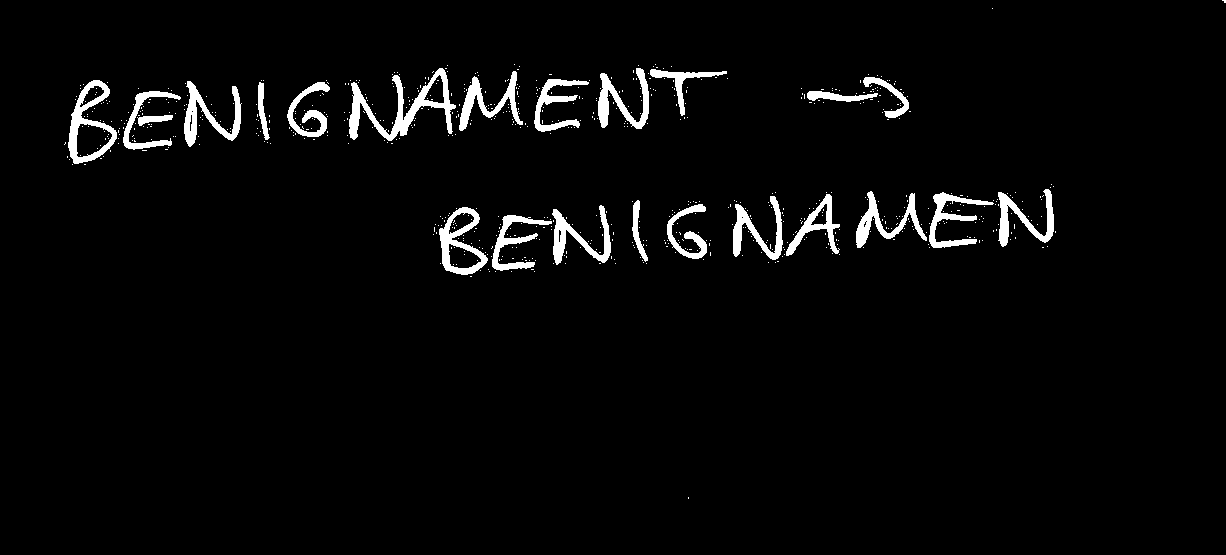 BENIGNAMENT →
BENIGNAMEN